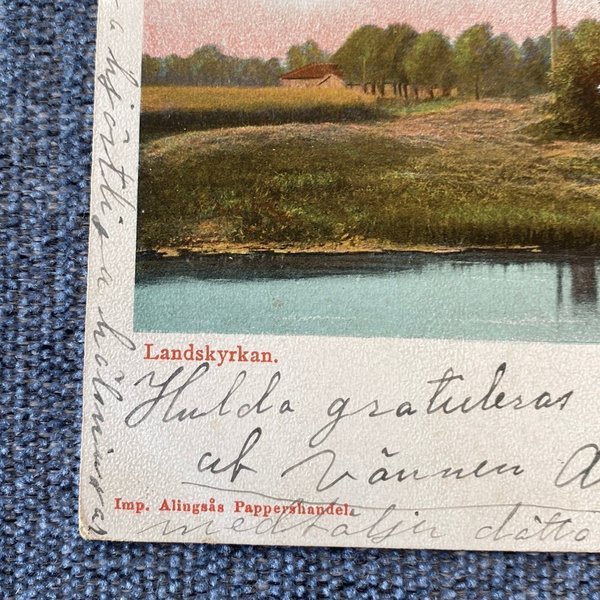 Landskyrkan.
Hulda gratuleras
af vännen A
Imp. Alingsås Pappershandel.
hjärtliga hälningar